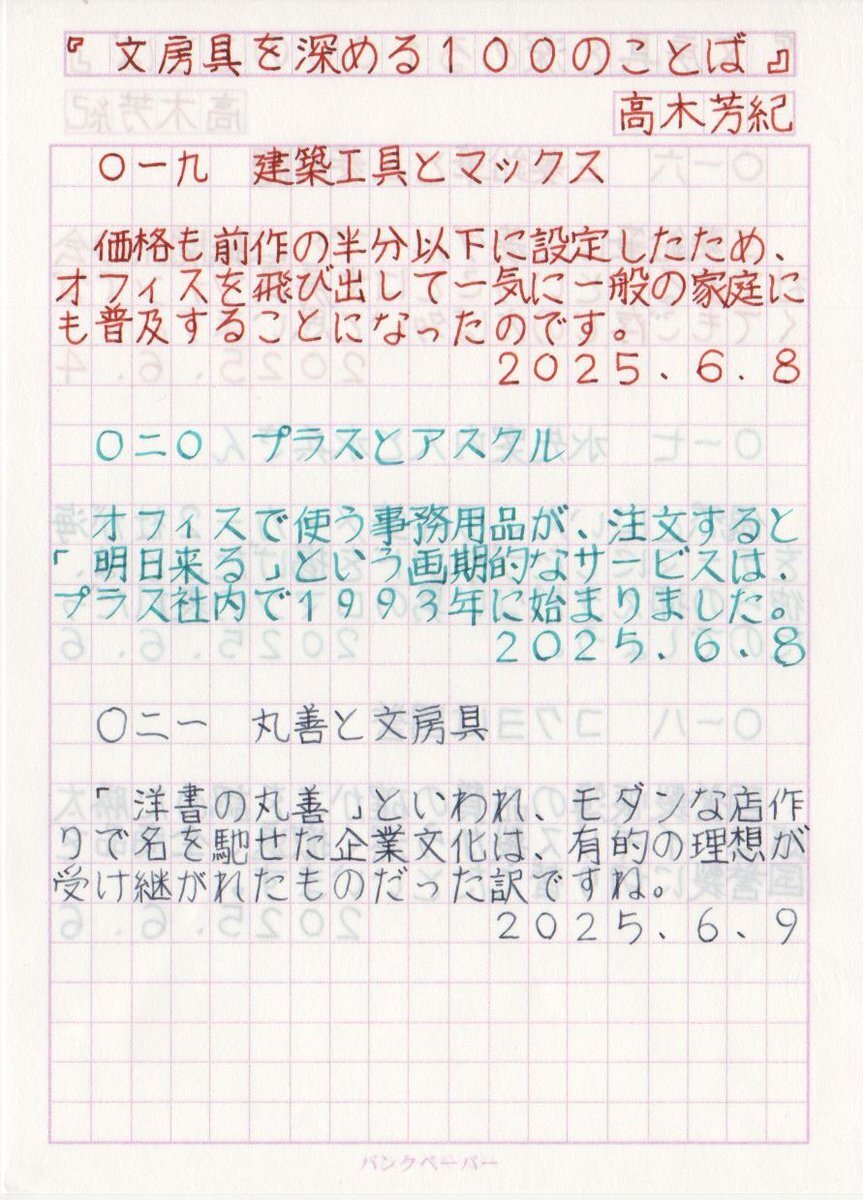 『文房具を深める100のことば』
高木芳紀
〇一九　建築工具とマックス
価格も前作の半分以下に設定したため、
オフィスを飛び出して一気に一般の家庭に
も普及することになったのです。
2025.6.8
〇二〇　プラスとアスクル
オフィスで使う事務用品が、注文すると
「明日来る」という画期的なサービスは、
プラス社内で1993年に始まりました。
2025.6.8
〇二一　丸善と文房具
「洋書の丸善」といわれ、モダンな店作
りで名を馳せた企業文化は、有的の理想が
受け継がれたものだった訳ですね。
2025.6.9
バンクペーパー